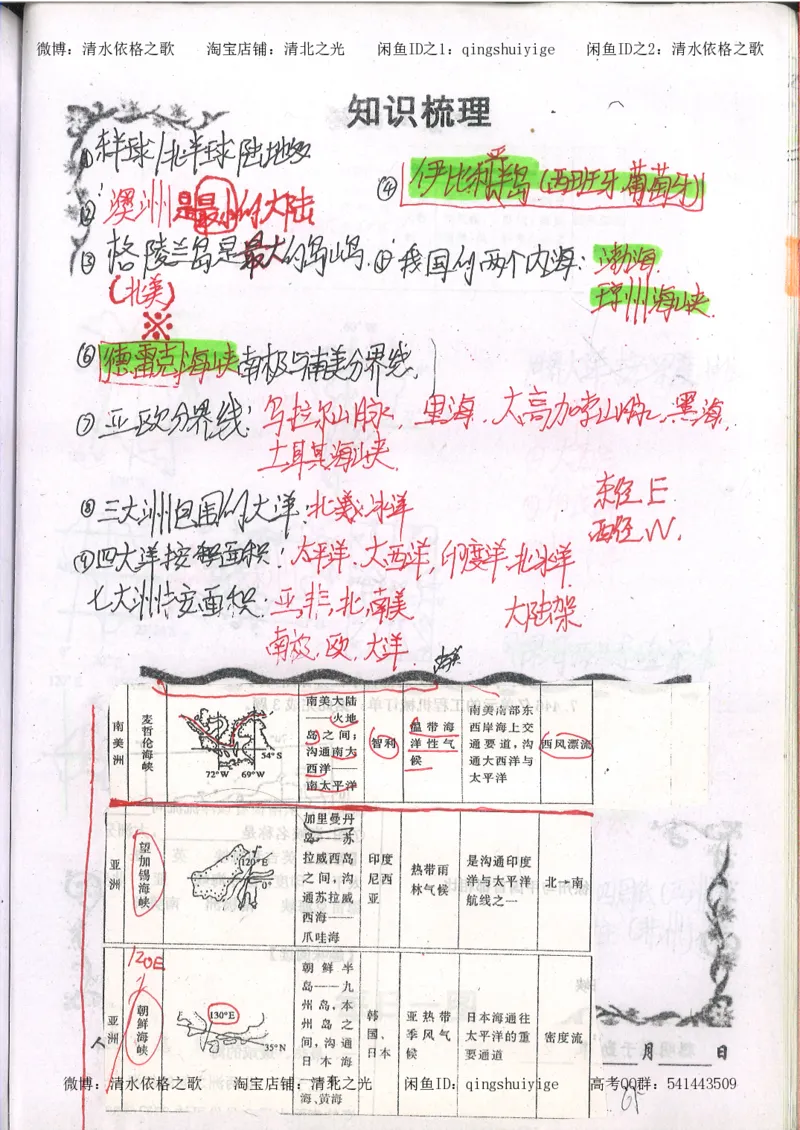 微博：清水依格之歌 淘宝店铺：清北之光 闲鱼ID之1：qingshuiyige 闲鱼ID之2：清水依格之歌
知识梳理
① 东半球/北半球陆地多
② 澳洲是最小的大陆
③ 格陵兰岛是最大的岛屿.
(北美)
※
④ 伊比利半岛(西班牙.葡萄牙)
⑤ 我国的两个内海: 渤海.
琼州海峡.
⑥ 德雷克海峡南极与南美分界线.
⑦ 亚欧分界线: 乌拉尔山脉, 里海. 大高加索山脉. 黑海,
土耳其海峡.
⑧ 三大洲包围的大洋: 北冰洋
东经 E
西经 W.
⑨ 四大洋按面积: 太平洋. 大西洋, 印度洋. 北冰洋
七大洲按面积: 亚, 非, 北, 南美
大陆架
南极, 欧, 大洋
南美洲
麦哲伦海峡
54°S
72°W 69°W
南美大陆
——火地
岛之间；
沟通南大
西洋——
南太平洋
智利
温带海
洋性气
候
南美南部东
西岸海上交
通要道，沟
通大西洋与
太平洋
西风漂流
亚洲
望加锡海峡
120°E
0°
加里曼丹
岛——苏
拉威西岛
之间，沟
通苏拉威
西海——
爪哇海
印度
尼西
亚
热带雨
林气候
是沟通印度
洋与太平洋
航线之一
北→南
120E
亚洲
朝鲜海峡
130°E
35°N
朝鲜半
岛——九
州岛，本
州岛之
间，沟通
日本海
海、黄海
韩
国、
日本
亚热带
季风气
候
日本海通往
太平洋的重
要通道
密度流
人
月 日
微博：清水依格之歌 淘宝店铺：清北之光 闲鱼ID：qingshuiyige 高考QQ群：541443509